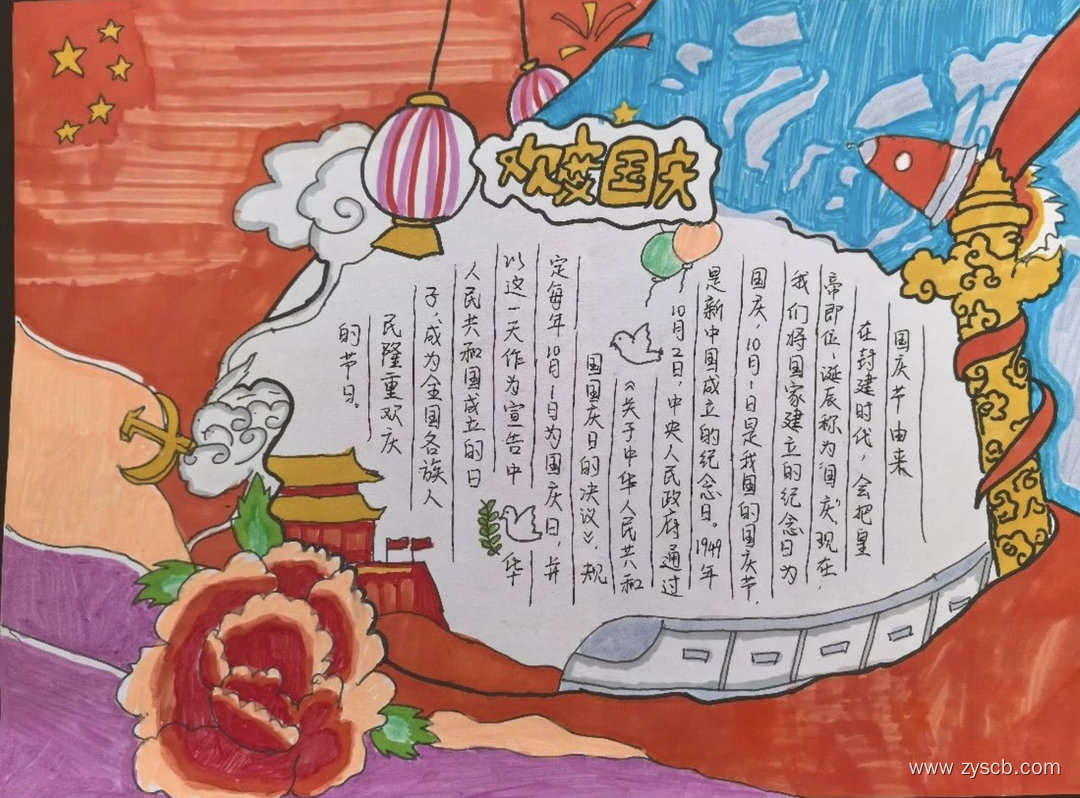 欢度国庆
国庆节由来
在封建时代，会把皇
帝即位、诞辰称为"国庆"。现在，
我们将国家建立的纪念日为
国庆，10月1日是我国的国庆节，
是新中国成立的纪念日。1949年
10月2日，中央人民政府通过
《关于中华人民共和
国国庆日的决议》，规
定每年10月1日为国庆日，并
以这一天作为宣告中华
人民共和国成立的日
子，成为全国各族人
民隆重欢庆
的节日。
www.zyscb.com